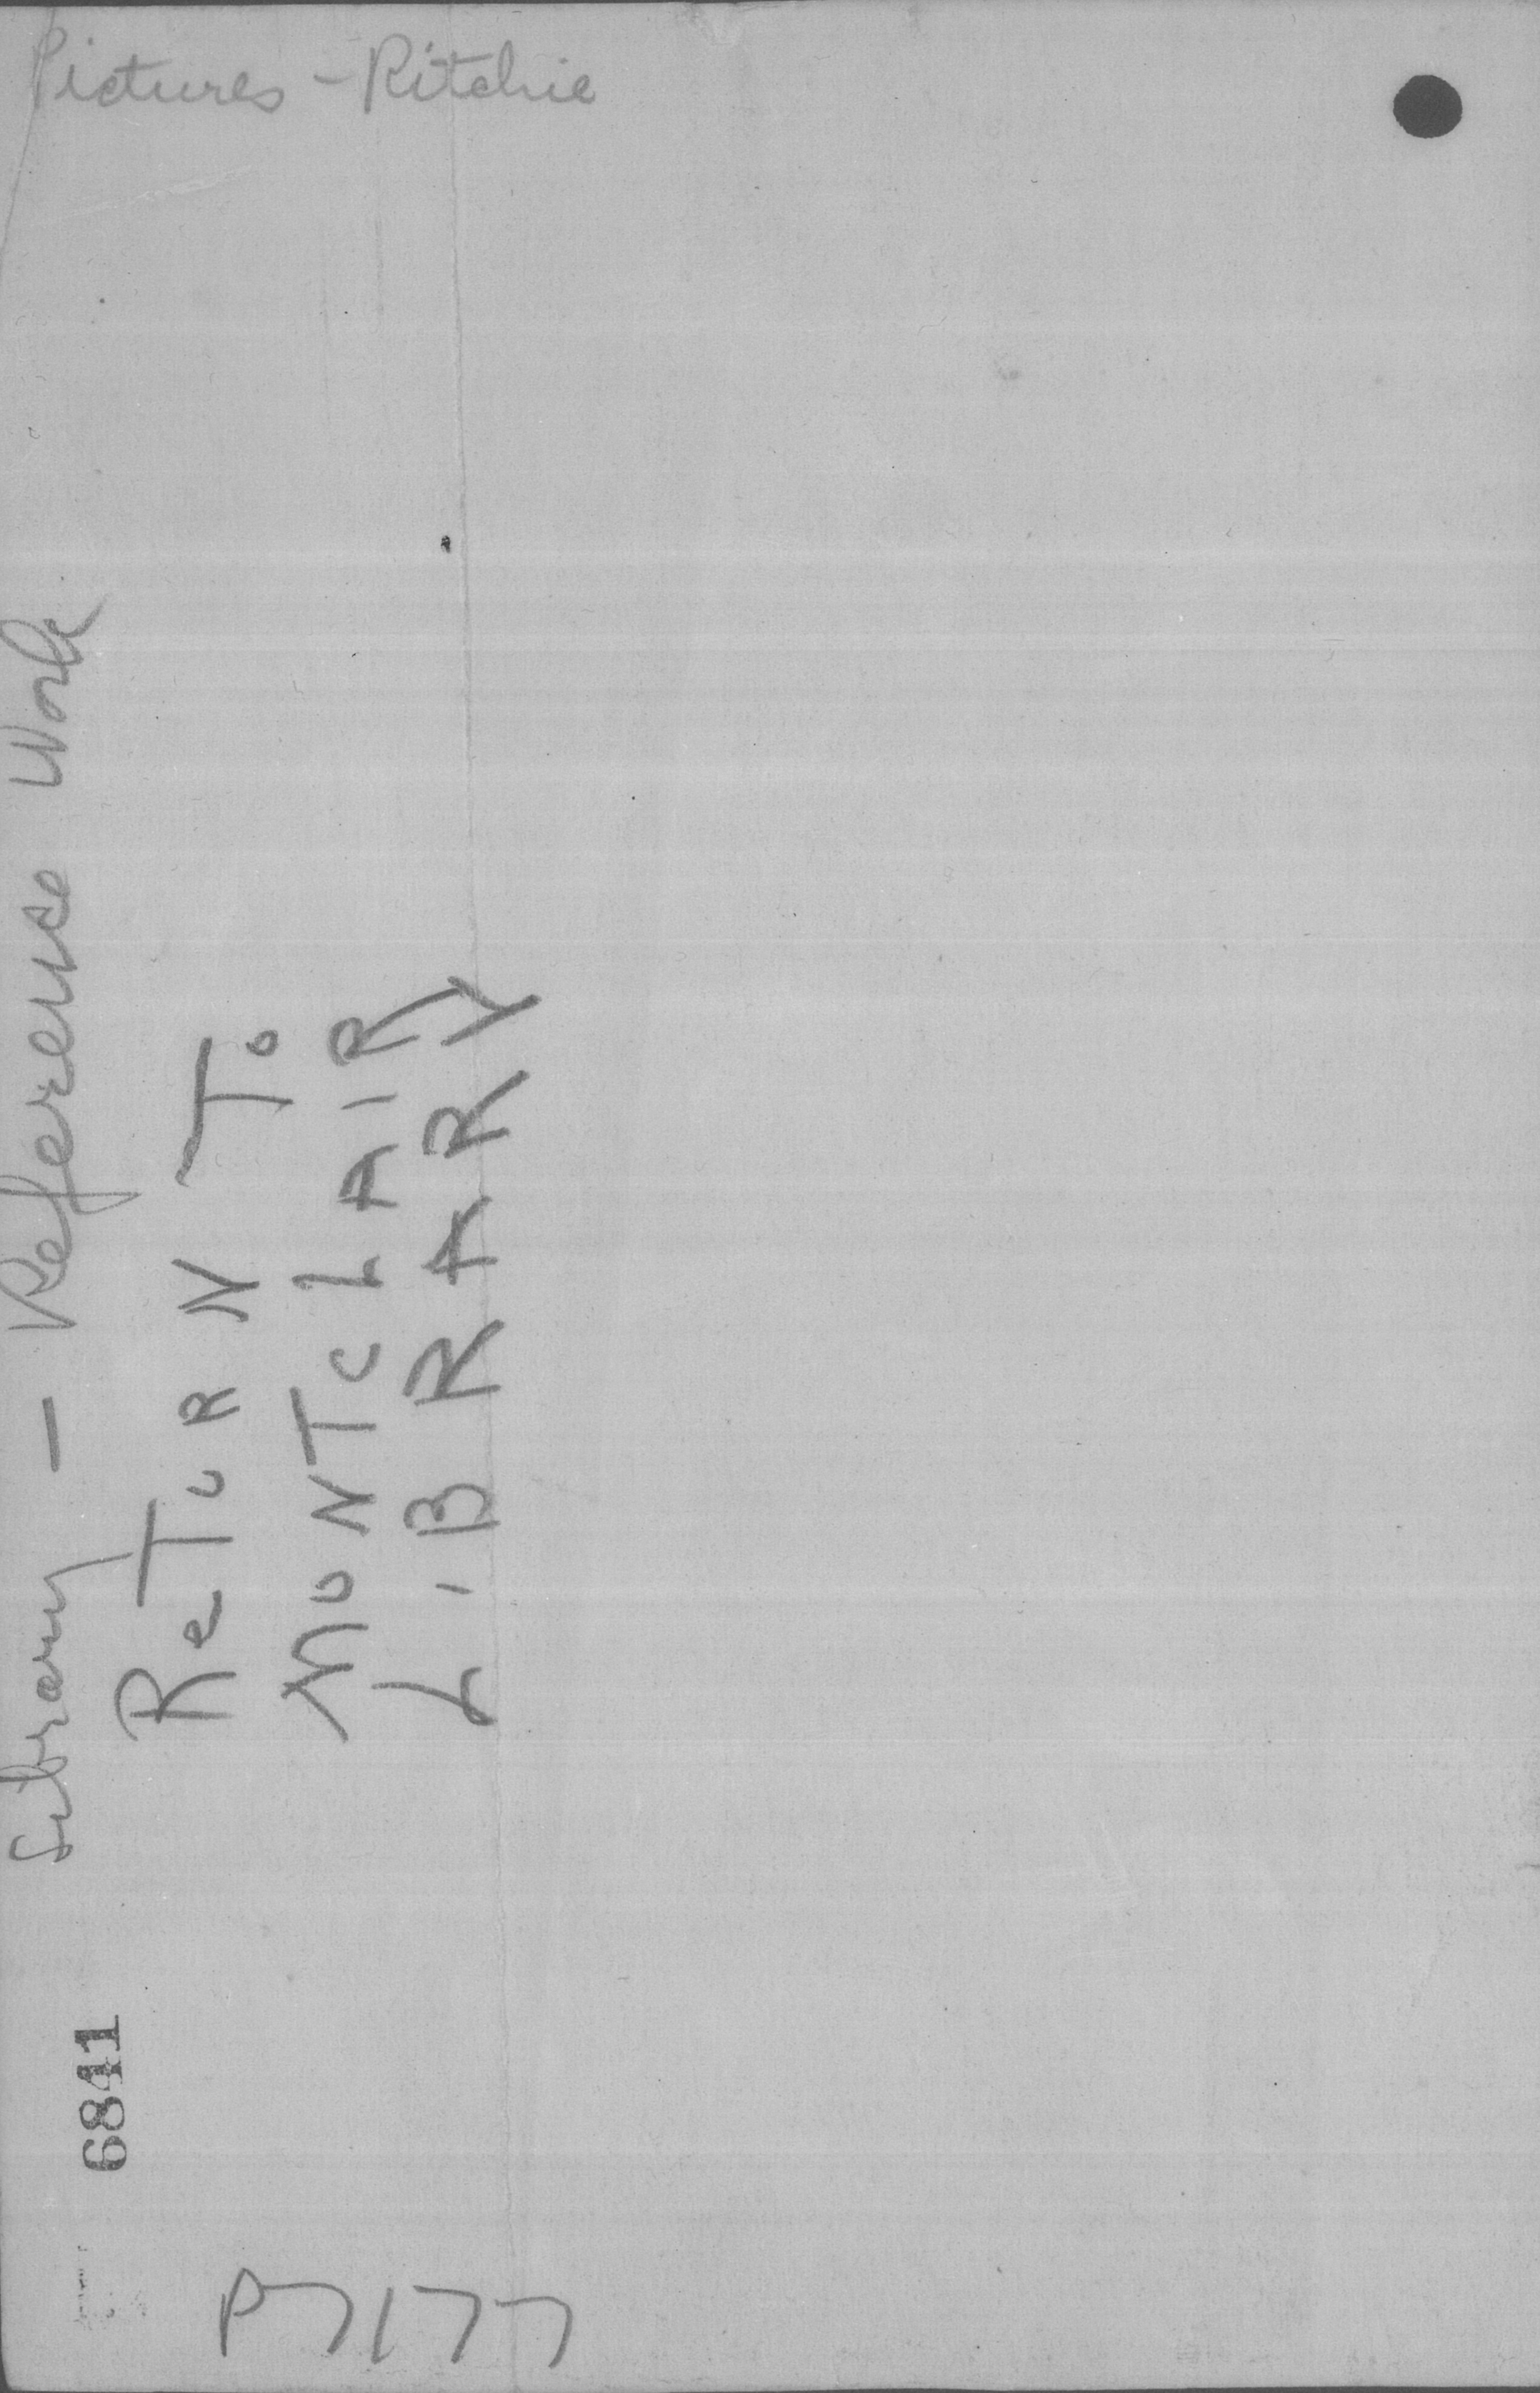 Pictures - Ritchie
Library - Reference Work
ReTURN To
MONTCLAIR
LIBRARY
6841
P7177